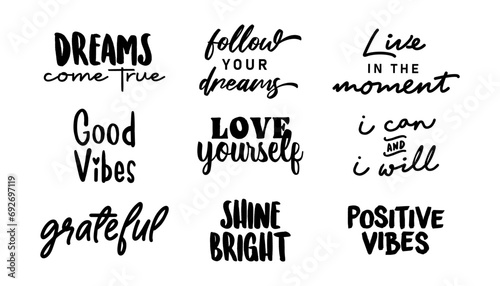 DREAMS
come True
follow
YOUR
dreams
Live
IN THE
moment
Good
Vibes
LOVE
yourself
i can
AND
i will
grateful
SHINE
BRIGHT
POSITIVE
VIBES
Adobe Stock | #692697119